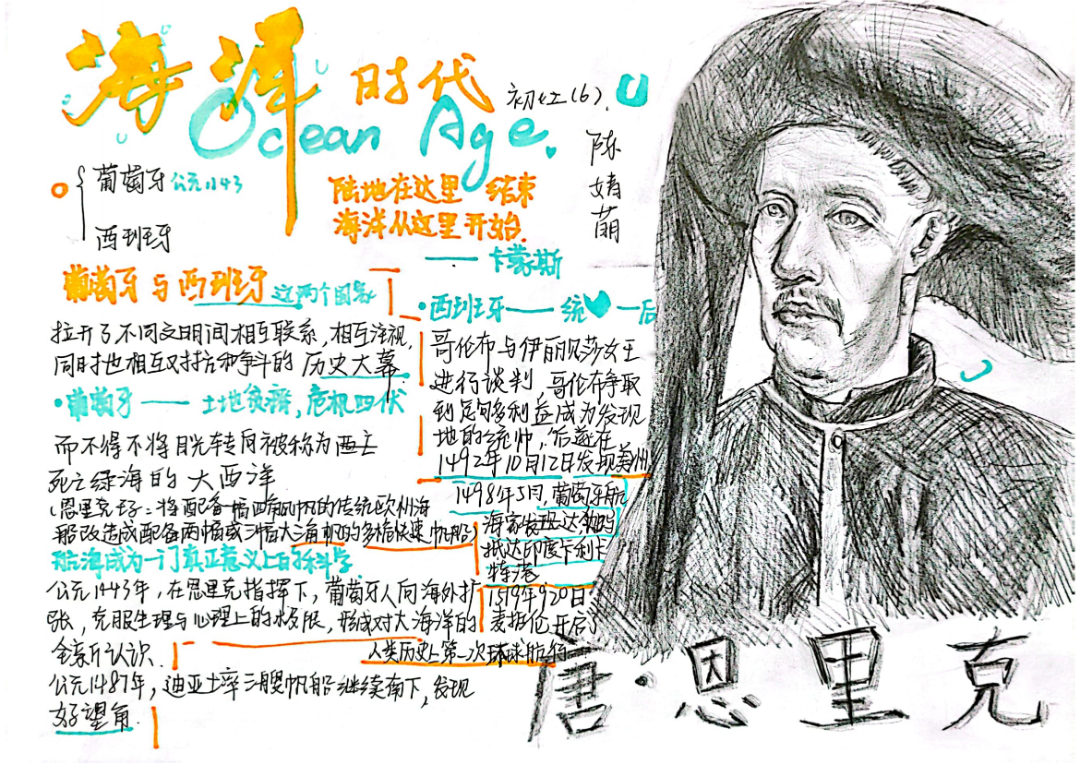 海洋时代
Ocean Age.
初一(6).
陈
婧
萌
葡萄牙 公元1143
西班牙
陆地在这里 结束
海洋从这里开始.
——卡蒙斯
葡萄牙与西班牙 这两个国家
拉开了不同文明间相互联系,相互注视,
同时也相互对抗和争斗的 历史大幕.
·葡萄牙—— 土地贫瘠,危机四伏
而不得不将目光转向被称为
死亡绿海的大西洋
(恩里克王子:将配备一幅四角风帆的传统欧州海
船改造成配备两幅或三幅大三角帆的多桅快速帆船)
航海成为一门真正意义上的科学
公元1443年,在恩里克指挥下,葡萄牙人向海外扩
张,克服生理与心理上的极限,形成对大海洋的
全新认识.
公元1487年,迪亚士率三艘帆船继续南下,发现
好望角.
·西班牙——统一后
哥伦布与伊丽贝莎女王
进行谈判,哥伦布争取
到足够多利益成为发现
地的统帅,后遂在
1492年10月12日发现美州
1498年5月,葡萄牙航
海家发现达伽马
抵达印度卡利卡
特港
1519年9月20日
麦哲伦开启了
人类历史上第一次环球航行
唐·恩里克